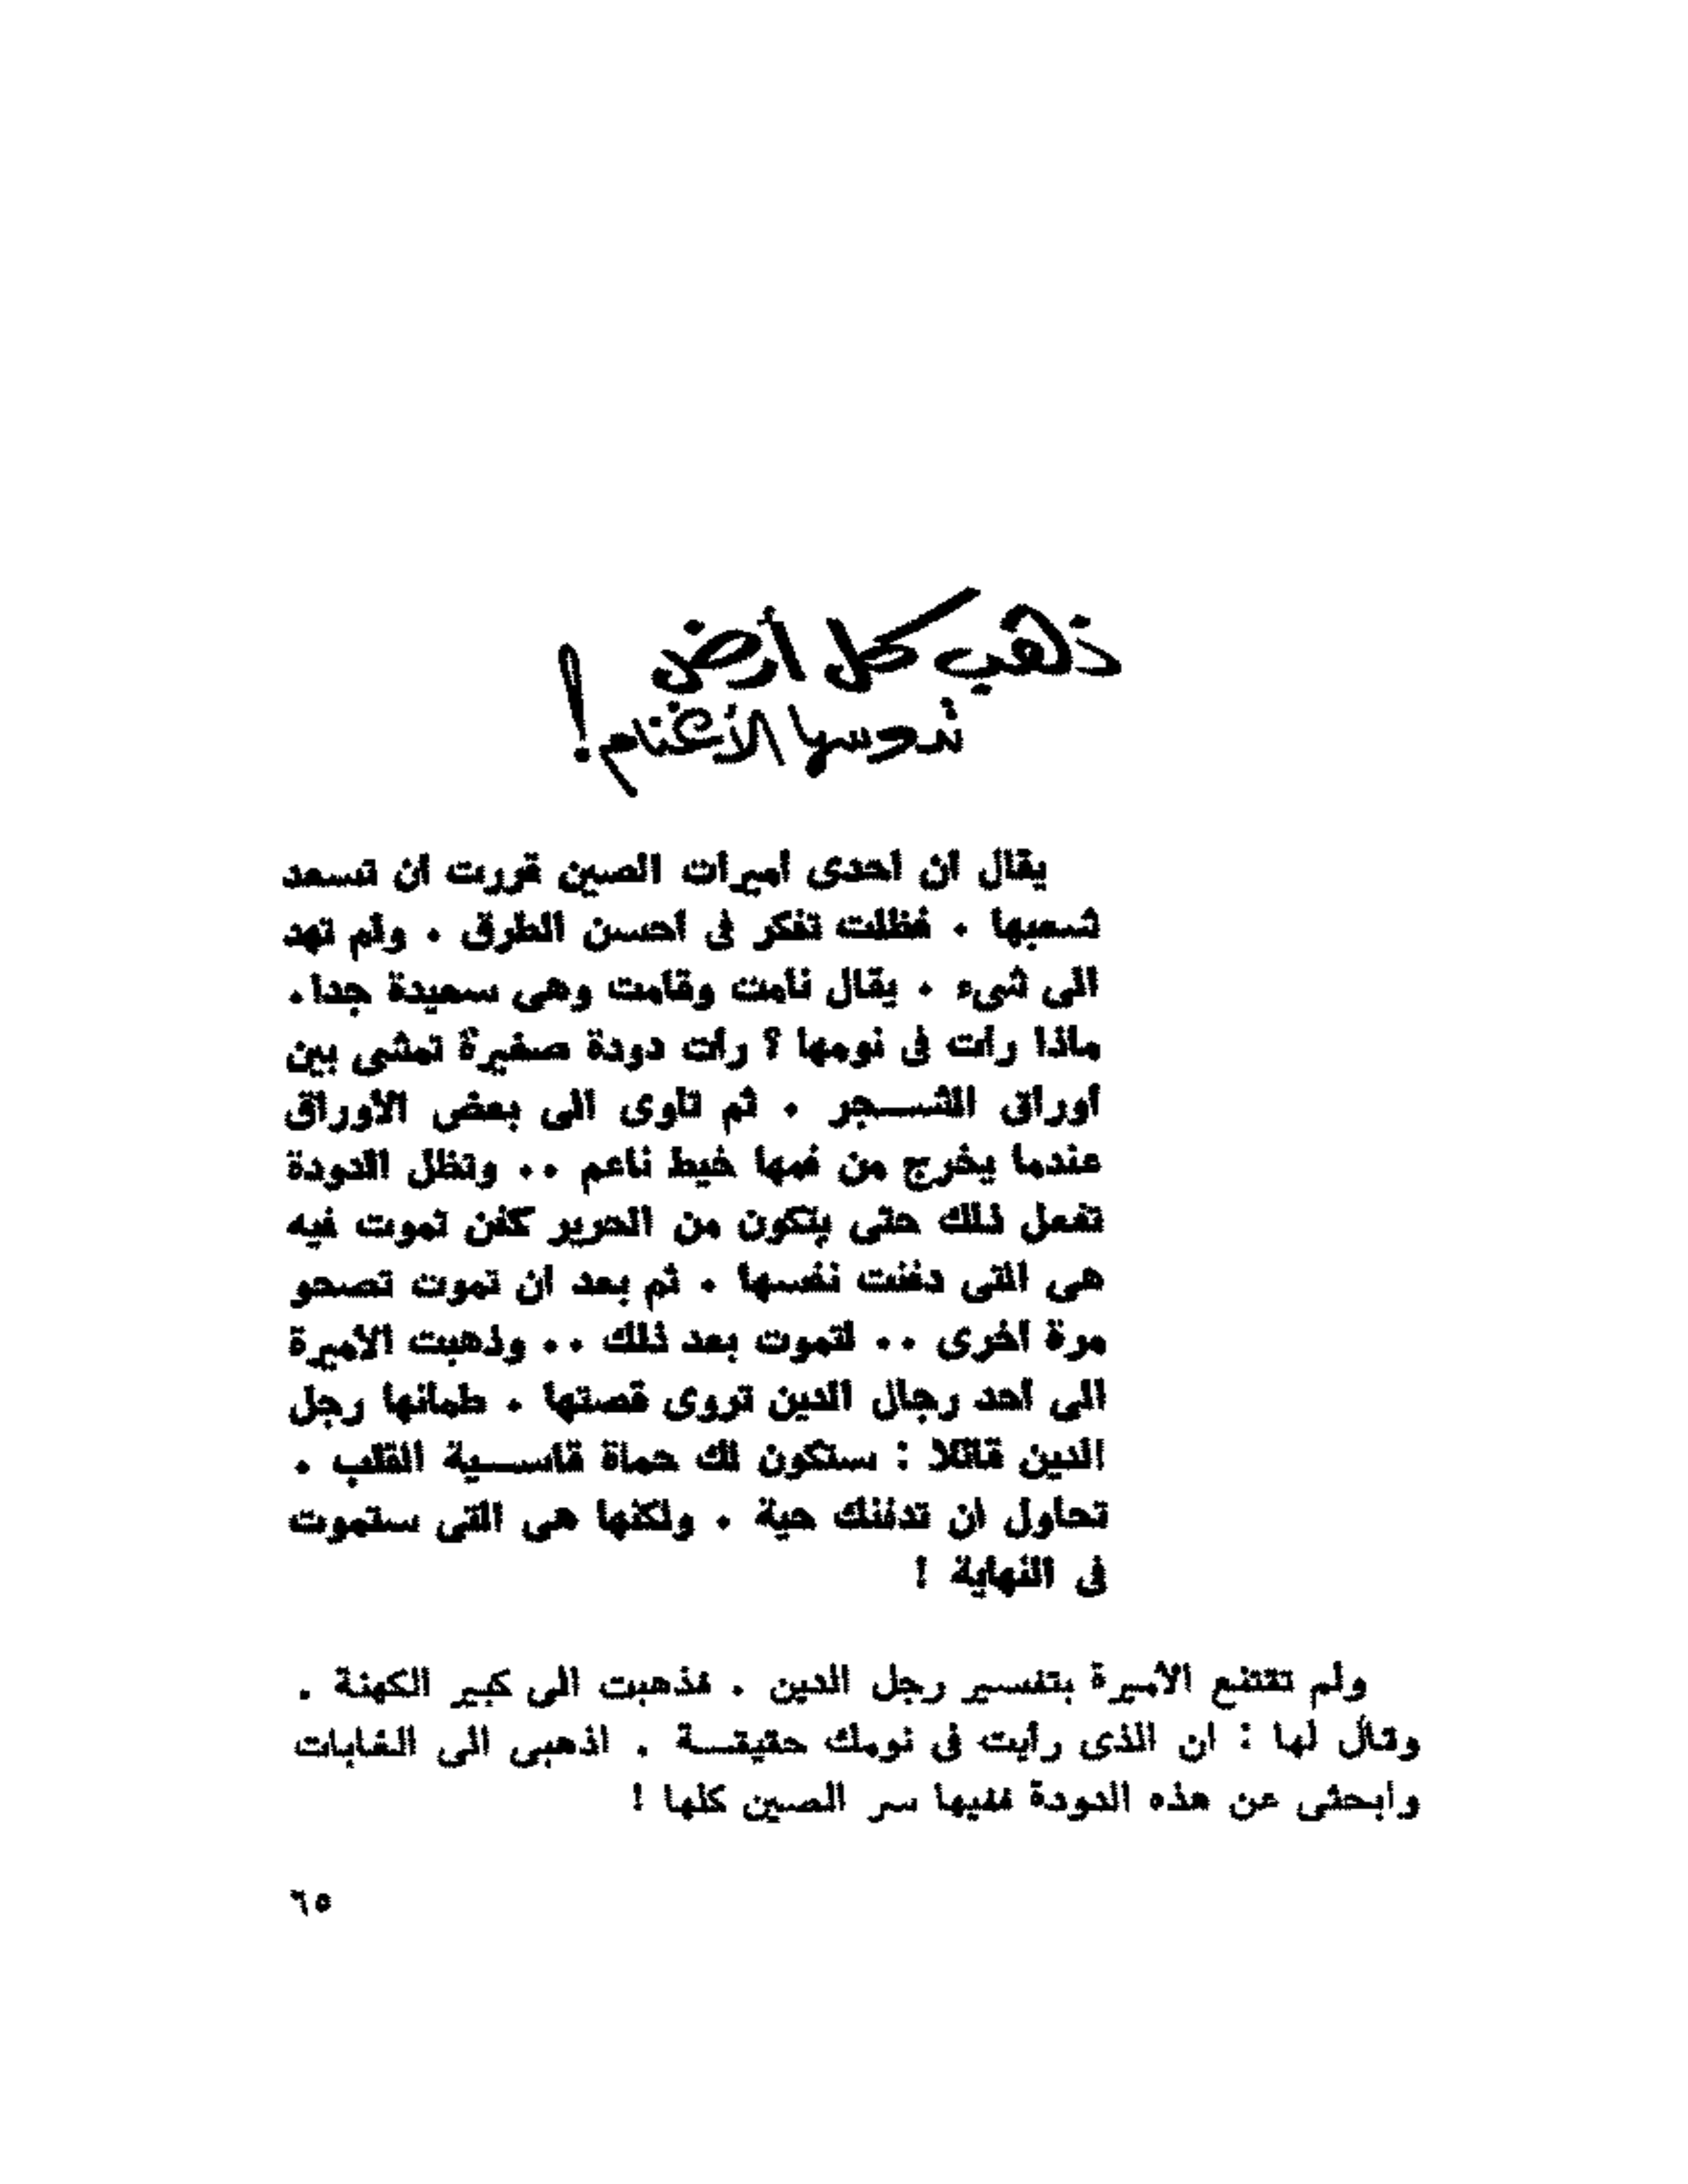 ذهب كل أرض
تدوسها الأغنام!
يقال ان احدى اميرات الصين قررت ان تسعد
شعبها . فظلت تفكر فى احسن الطرق . ولم تهد
الى شىء . يقال نامت وقامت وهى سعيدة جدا .
ماذا رأت فى نومها ؟ رأت دودة صغيرة تمشى بين
أوراق الشجر . ثم تأوى الى بعض الأوراق
عندما يخرج من فمها خيط ناعم .. وتظل الدودة
تفعل ذلك حتى يتكون من الحرير كفن تموت فيه
هى التى دفنت نفسها . ثم بعد ان تموت تصحو
مرة اخرى .. لتموت بعد ذلك .. وذهبت الأميرة
الى أحد رجال الدين تروى قصتها . طمأنها رجل
الدين قائلا : ستكون لك حماة قاسية القلب .
تحاول ان تدفنك حية . ولكنها هى التى ستموت
فى النهاية !
ولم تقتنع الأميرة بتفسير رجل الدين . فذهبت الى كبير الكهنة .
وقال لها : ان الذى رأيت فى نومك حقيقة . اذهبى الى الغابات
وابحثى عن هذه الدودة ففيها سر الصين كلها !
٦٥